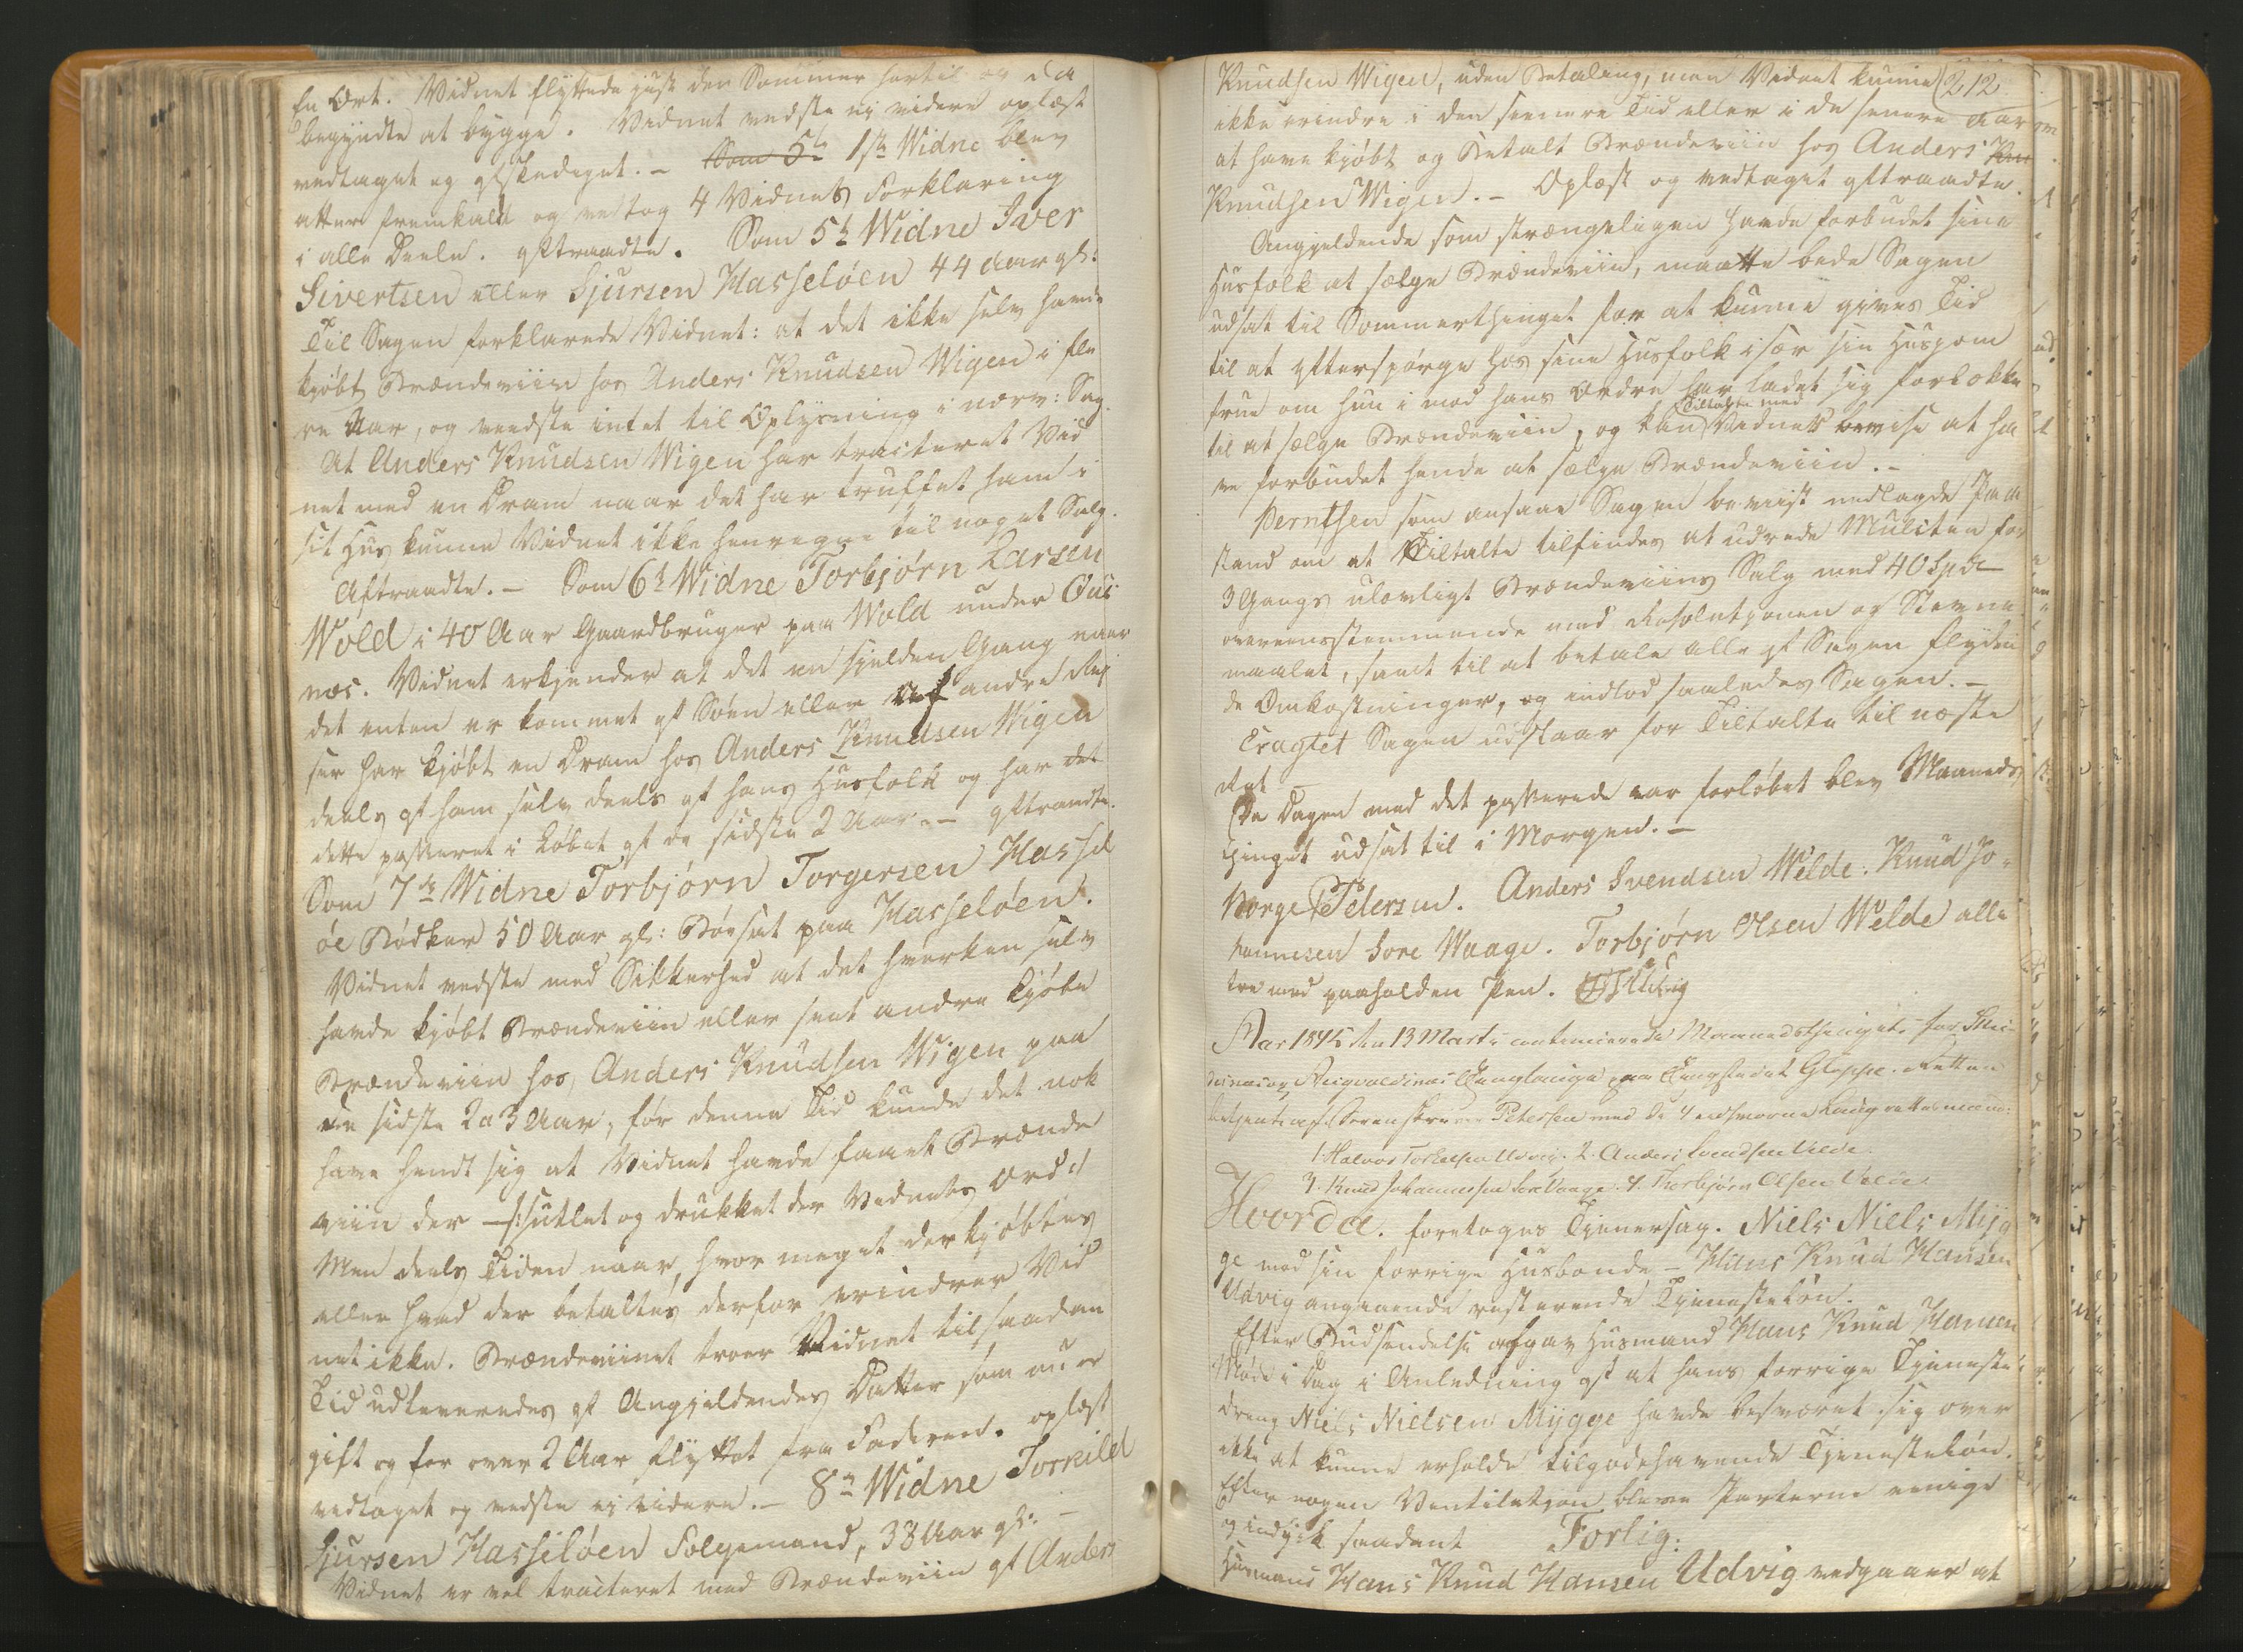 En Ort. Vidnet flyttede just den Sommer hertil og da
begyndte at bygge. Vidnet vedste ej videre oplæst
vedtaget og afskediget. – Som 5te 1ste Widne blev
atter fremkaldt og vedtog 4 Vidnets Forklaring
i alle Deele. aftraadte. Som 5te Widne Iver
Sivertsen eller Sjursen Hasseløen 44 Aar gl:
Til Sagen forklarede Vidnet: at det ikke selv havde
kjøbt Brændeviin hos Anders Knudsen Wigen i fle
re Aar, og veedste intet til Oplysning i nærv: Sag.
At Anders Knudsen Wigen har tracteret Vid
net med en Dram naar det har truffet ham i
sit Huus kunne Vidnet ikke henregne til noget Salg.
Aftraadte. – Som 6te Widne Torbjørn Larsen
Wold i 40 Aar Gaardbruger paa Wold under Qvis
næs. Vidnet erkjender at det en sjelden Gang naar
det enten er kommet af Søen eller af andre Rej
ser har kjøbt en Dram hos Anders Knudsen Wigen
deels af ham selv deels af hans Huusfolk og har det
dette passeret i Løbet af de sidste 2 Aar. – aftraadte.
Som 7de Widne Torbjørn Torgersen Hassel
øe Bødker 50 Aar gl: Boesat paa Hasseløen.
Vidnet vedste med Sikkerhed at det hverken selv
havde kjøbt Brændeviin eller seet andre kjøbe
Brændeviin hos Anders Knudsen Wigen paa
de sidste 2 a 3 Aar, før denne Tid kunde det nok
have hendt sig at Vidnet havde faaet Brænde
viin der – /: sutlet og drukket der Vidnets Ord :/
Men deels Tiden naar, hvor meget der kjøbtes
eller hvad der betaltes derfor erindrer Vid
net ikke. Brændeviinet troer Vidnet til saadan
Tid udleveredes af Angjeldendes Datter som nu er
gift og for over 2 Aar flyttet fra Faderen. oplæst
vedtaget og vedste ej videre. – 8de Widne Torkild
Sjursen Hasseløen Følgemand, 38 Aar gl: –
Vidnet er vel tracteret med Brændeviin af Anders
212
Knudsen Wigen, uden Betaling, men Vidnet kunne
ikke erindre i den seenere Tid eller i de senere Aar
at have kjøbt og Betalt Brændeviin hos Anders Knu
Knudsen Wigen. – Oplæst og vedtaget aftraadte.
Angjeldende som strængeligen havde forbudet sine
Huusfolk at sælge Brændeviin, maatte bede Sagen
udsat til Sommerthinget for at kunne gives Tid
til at efterspørge hos sine Huusfolk især sin Huusjom
frue om hun i mod hans Ordre har ladet sig forlokke
Tiltalte med
til at sælge Brændeviin, og kan Vidnet bevise at ha
ve forbudet hende at sælge Brændeviin. –
Berntsen som ansaae Sagen beviist nedlagde Paa
stand om at Tiltalte tilfindes at udrede Mulcten for
3 Gangs ulovligt Brændeviins Salg med 40 Spd
overeensstemmende med Resolutjonen og Stevne
maalet, samt til at betale alle af Sagen flyden
de Omkostninger, og indlod saaledes Sagen. –
Eragtet Sagen udstaar for Tiltalte til næste
Ret
Da Dagen med det passerede var forløbet blev Maaneds
Thinget udsat til i Morgen. –
Børge Petersen. Anders Svendsen Welde. Knud Jo-
hannesen Sore Waage. Torbjørn Olsen Welde alle
tre med paaholden Pen.
Aar 1845 den 13 Marts continuerede Maanedsthinget for
Ringvoldnæs Thinglauge paa Thingstedet Gleppe. Retten
betjent af Sorenskriver Petersen med de 4 eedsvorne Laugrettesmænd:
1. Halvor Torkelsen Udvig. 2. Anders Svendsen Velde.
3. Knud Johannesen Sore Vaage. 4. Thorbjørn Olsen Velde.
Hvorda. foretoges Tjenersag. Niels Niels Myg
ge mod sin forrige Huusbonde – Hans Knud Hansen
Udvig angaaende resterende Tjenesteløn.
Efter Budsendelse afgav Huusmand Hans Knud Hansen
Møde i Dag i Anledning af at hans forrige Tjeneste
dreng Niels Nielsen Mygge havde besværet sig over
ikke at kunne erholde tilgodehavende Tjenesteløn.
Efter nogen Ventilatjon bleve Parterne eenige
og indgik saadant Forlig:
Huusmand Hans Knud Hansen Udvig vedgaaer at